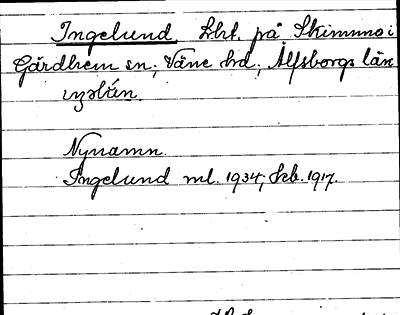 Ingelund Lht. på Skimmo i
Gärdhem sn; Väne hd; Älfsborgs län
Nynamn.
Ingelund ml. 1934, Jeb. 1917.